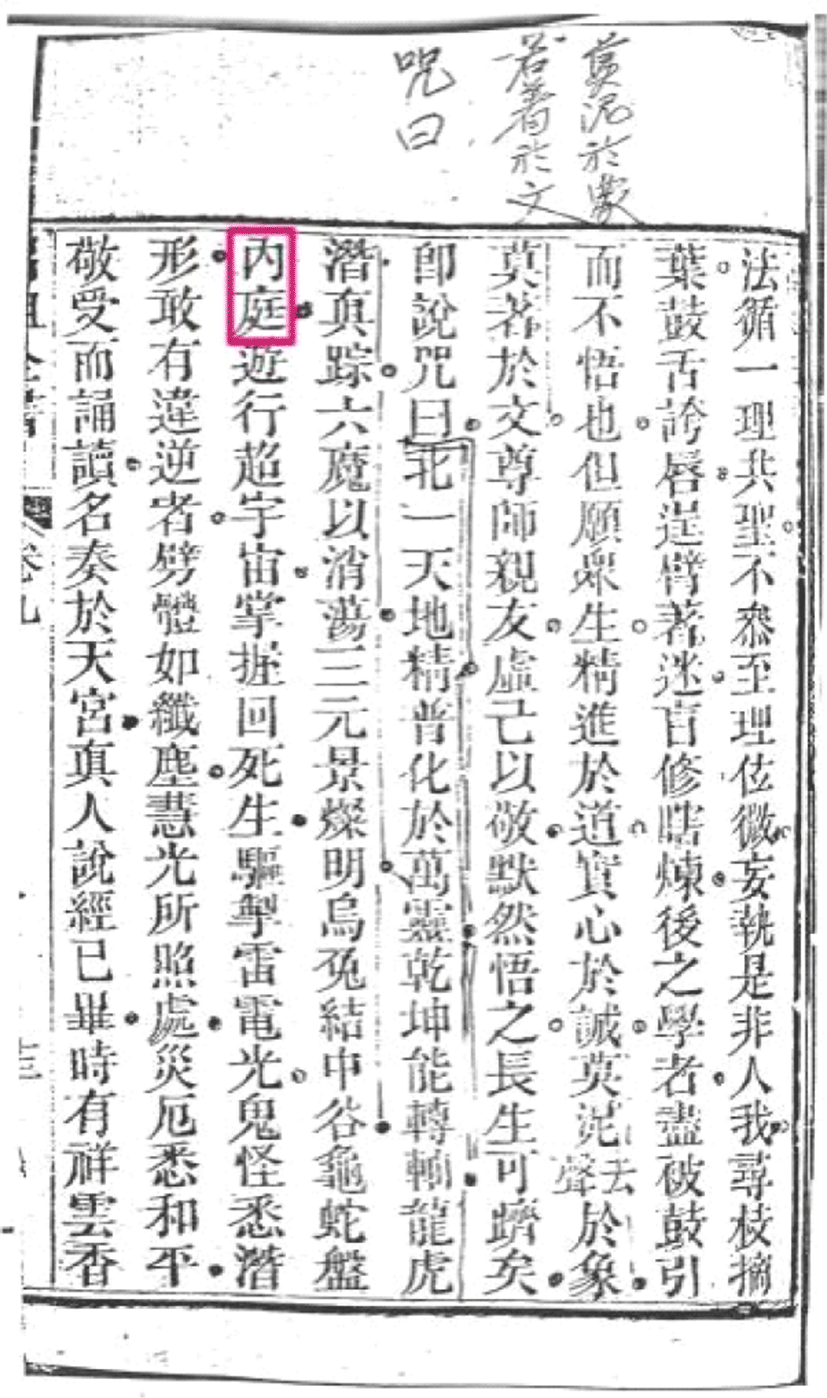 莫泥於象
若著於文
咒曰
法循一理共聖不叅至理位微妄執是非人我尋枝摘
葉鼓舌誇唇逞臂著迷盲修瞎煉後之學者盡被鼓引
而不悟也但願眾生精進於道實心於誠莫泥去聲於象
莫著於文尊師親友虛己以敬默然悟之長生可躋矣
卽說咒曰北一天地精普化於萬靈乾坤能轉輸龍虎
潛真踪六魔以消蕩三元景燦明烏兔結中谷龜蛇盤
內庭遊行超宇宙掌握回死生驅掣雷電光鬼怪悉潛
形敢有違逆者劈體如纖塵慧光所照處災厄悉和平
敬受而誦讀名奏於天宮真人說經已畢時有祥雲香